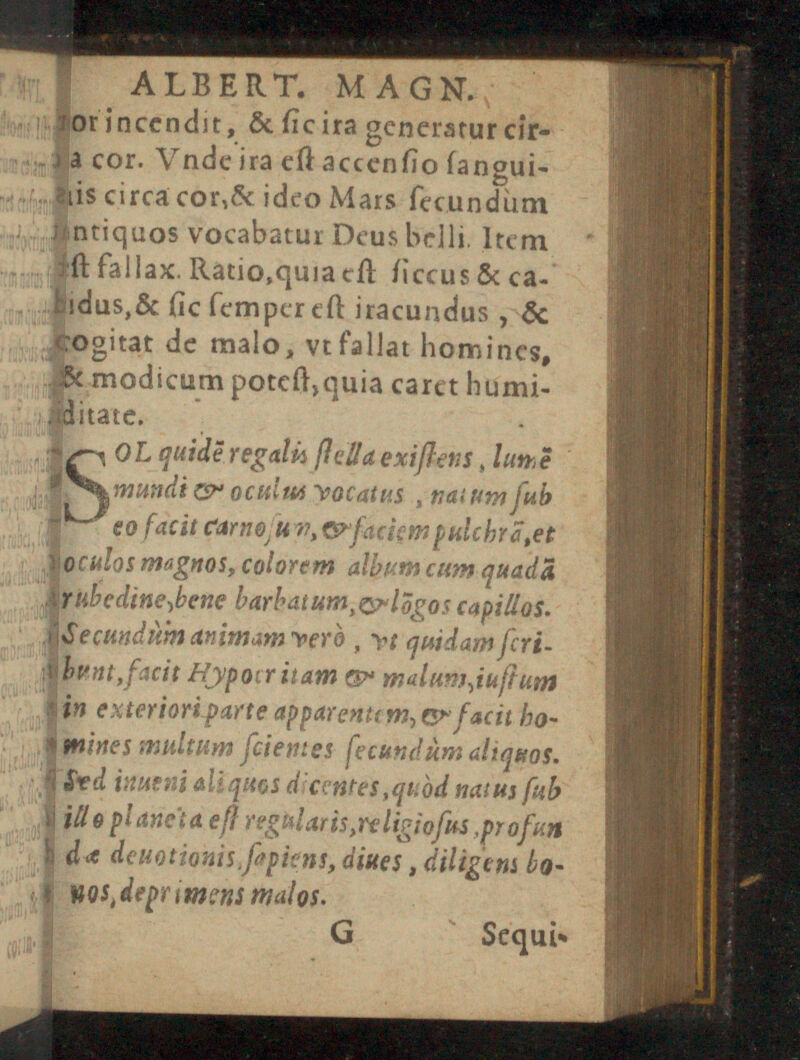 ALBERT. MAGN.
or incendit, & ſic ira generatur cir-
a cor. Vnde ira eſt accenſio ſangui-
nis circa cor,& ideo Mars ſecundùm
antiquos vocabatur Deus belli. Item
eſt fallax. Ratio,quia eſt ſiccus & ca-
lidus,& ſic ſemper eſt iracundus , &
cogitat de malo, vt fallat homines,
& modicum poteſt, quia caret humi-
ditate.
SOL quidē regalis ſtella exiſtens , lumē
mundi & oculus vocatus , natum ſub
eo facit carnoſum, & faciem pulchrā,et
oculos magnos, colorem album cum quadā
rubedine,bene barbatum,& lōgos capillos.
Secundùm animam verò , vt quidam ſcri-
bunt,facit Hypocritam & malum,iuſtum
in exteriori parte apparentem, & facit ho-
mines multum ſcientes ſecundùm aliquos.
Sed inueni aliquos dicentes,quòd natus ſub
illo planeta eſt regularis,religioſus ,profun
dæ deuotionis,ſapiens, diues , diligens bo-
nos,deprimens malos.
G Sequi-